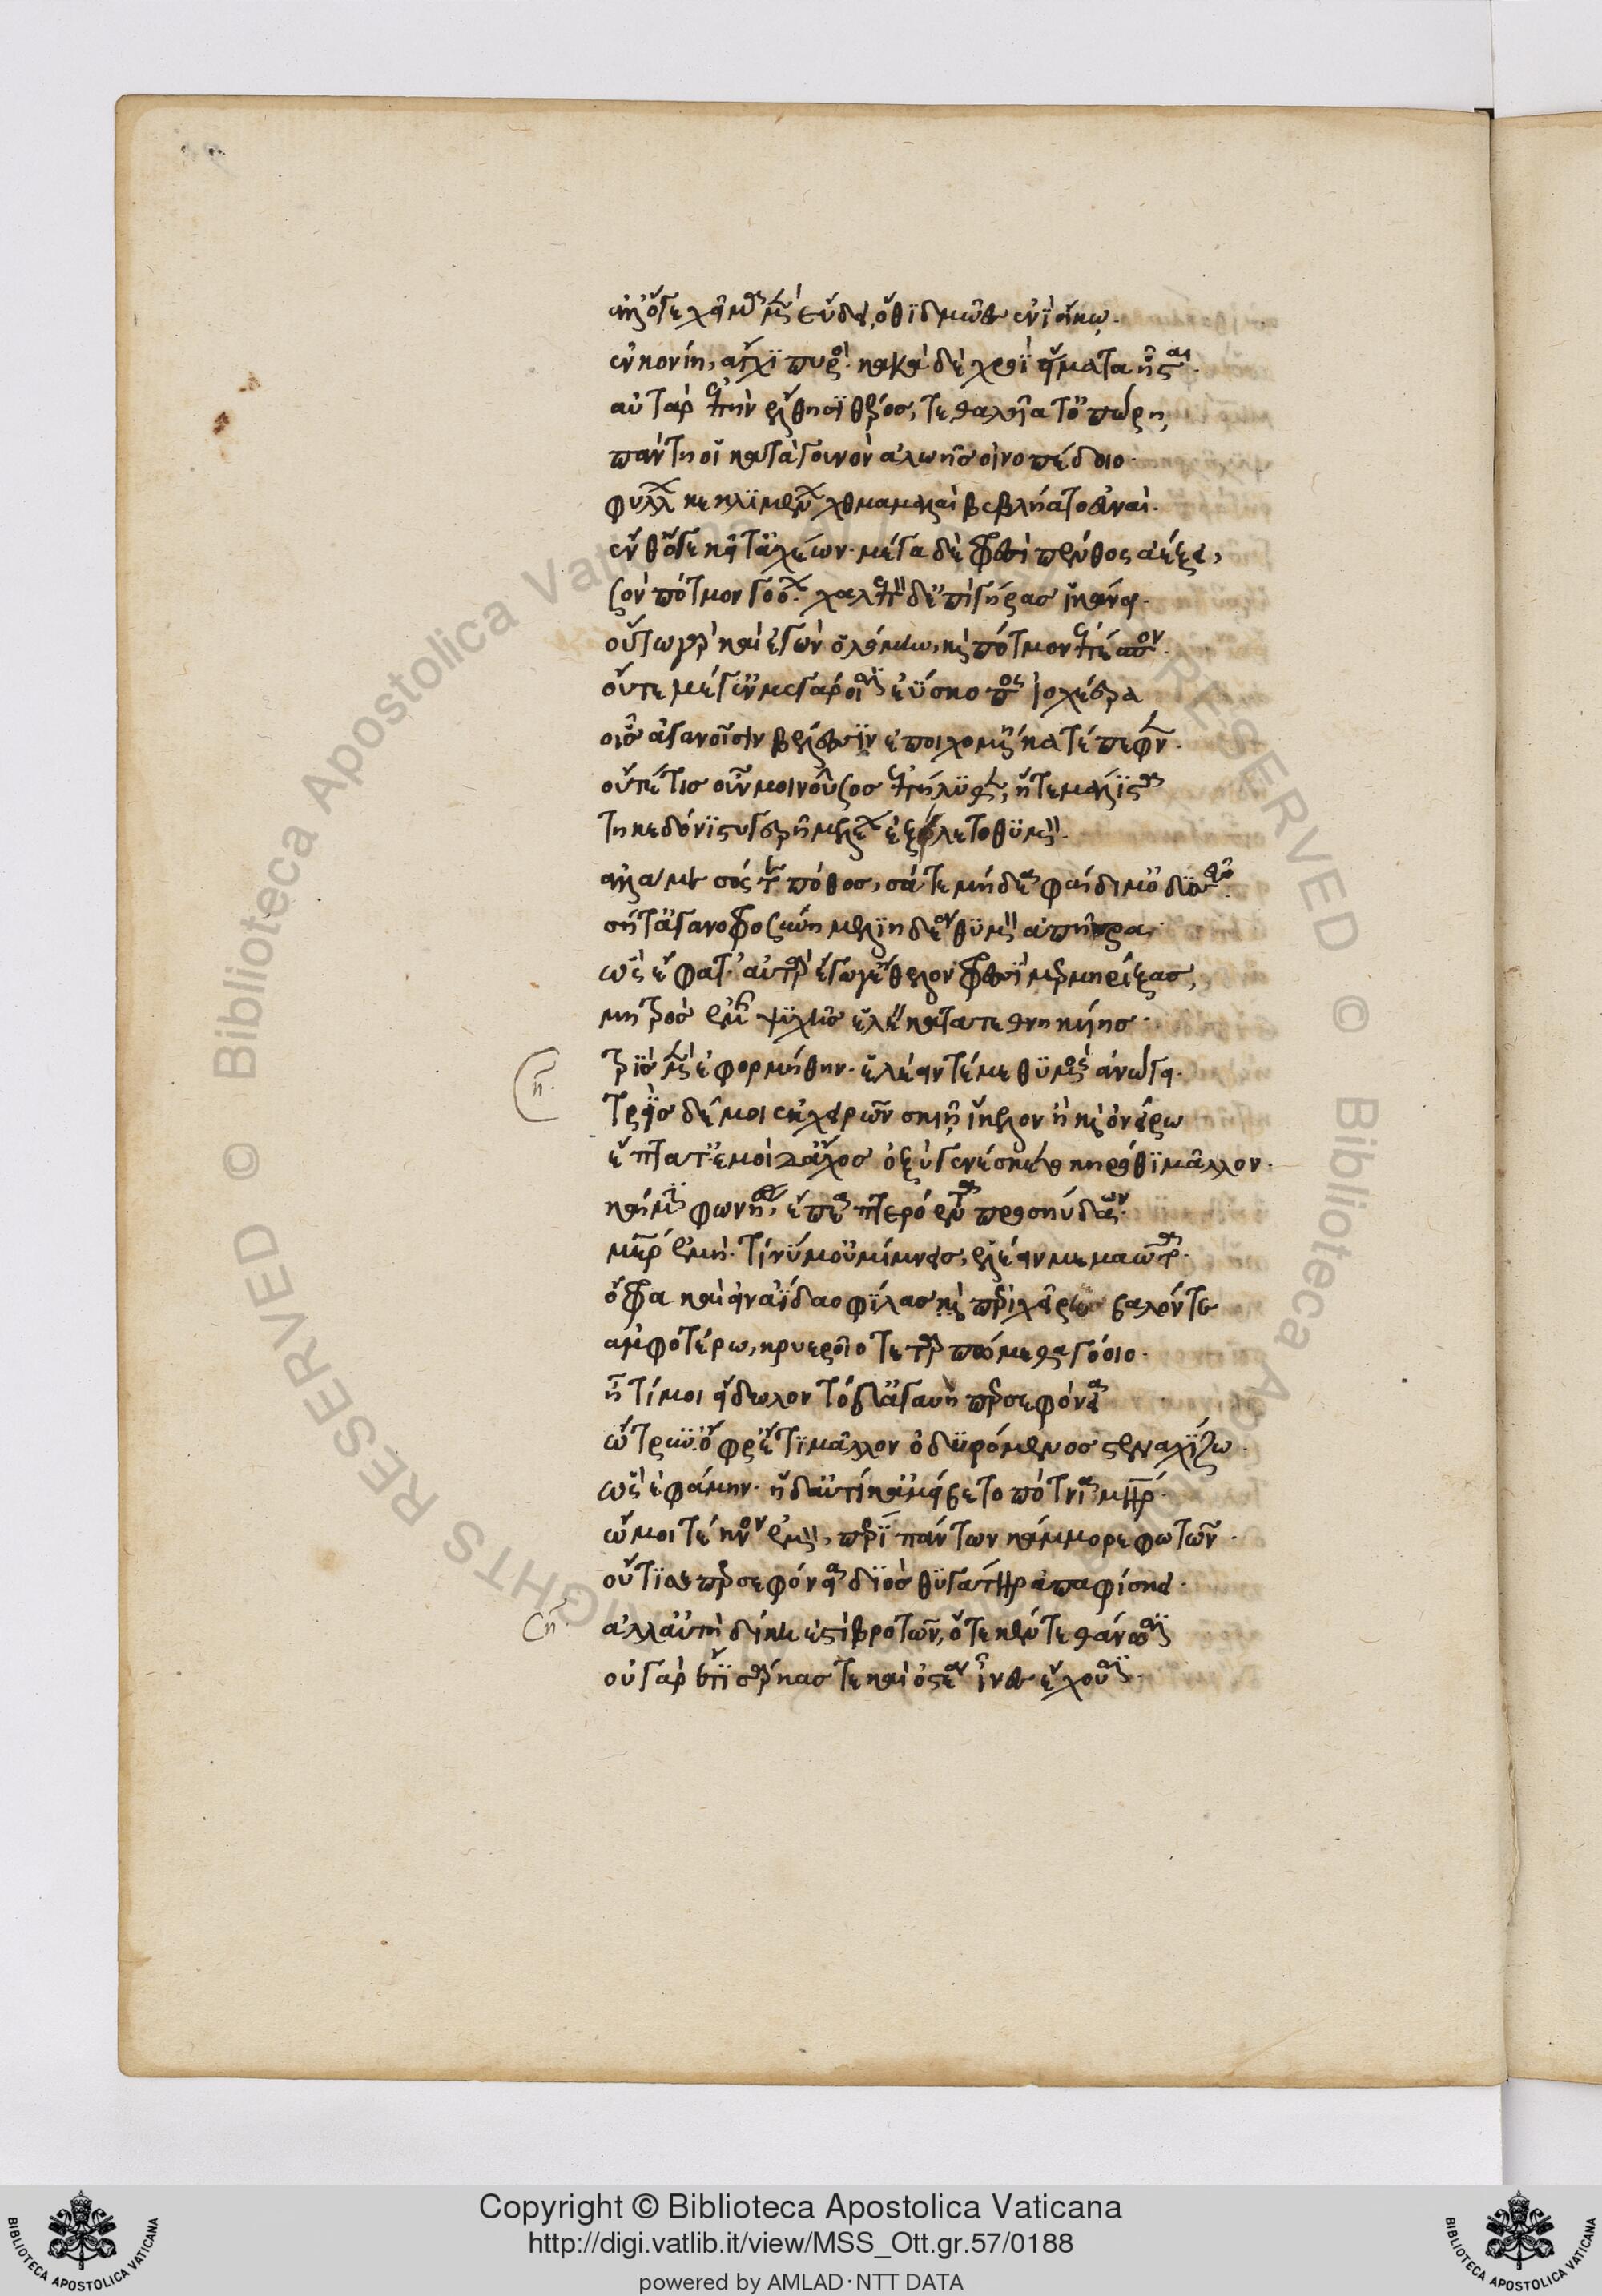 ἀλλ' ὅγε χεῖμα μὲν εὕδει, ὅθι δμῶες ἐνὶ οἴκω.
ἐν κονίη, ἄγχι πυρός. κακὰ δὲ χροῒ εἵματα ἧσται.
αὐτὰρ ἐπὴν ἔλθησι θέρος, τεθαλυῖα τ' ὀπώρη,
πάντη οἱ κατὰ γουνὸν ἀλωῆς οἰνοπέδοιο.
φύλλων κεκλιμένων χθαμαλαὶ βεβλήατο εὐναί.
ἔνθ' ὅγε κεῖτ' ἀχέων. μέγα δὲ φρεσὶ πένθος ἀέξει,
σὸν πότμον γοόων. χαλεπὸν δ' ἐπὶ γῆρας ἱκάνει.
οὕτω γὰρ καὶ ἐγὼν ὀλόμην, καὶ πότμον ἐπέσπον.
οὔτε μέ γ' ἐν μεγάροισιν ἐΰσκοπος ἰοχέαιρα
οἷς ἀγανοῖσιν βέλεσσιν ἐποιχομένη κατέπεφνεν.
οὔτέ τις οὖν μοι νοῦσος ἐπήλυθεν, ἥτε μάλιστα
τηκεδόνι στυγερῆ μελέων ἐξείλετο θυμόν.
ἀλλά με σός τε πόθος, σά τε μήδεα φαίδιμ' ὀδυσσεῦ.
σή τ' ἀγανοφροσύνη μελιηδέα θυμὸν ἀπηύρα.
ὣς ἔφατ'. αὐτὰρ ἐγώ γ' ἔθελον φρεσὶ μερμηρίξας,
μητρὸς ἐμῆς ψυχὴν ἑλέειν κατατεθνηκυίης.
τρὶς μὲν ἐφορμήθην. ἑλέειν τέ με θυμὸς ἀνώγει.
τρὶς δέ μοι ἐκ χειρῶν σκιῇ ἴκελον ἢ καὶ ὀνείρω
ἔπτατ'. ἐμοὶ δ' ἄχος ὀξὺ γενέσκετο κηρόθι μᾶλλον.
καί μιν φωνήσας, ἔπεα πτερόεντα προσηύδων.
μῆτερ ἐμή. τί νύ μ' οὐ μίμνεις, ἑλέειν μεμαῶτα.
ὄφρα καὶ εἰν ἀΐδαο φίλας περὶ χεῖρε βαλόντε
ἀμφοτέρω, κρυεροῖο τεταρπώμεθα γόοιο.
ἦ τί μοι εἴδωλον τόδ' ἀγαυὴ περσεφόνεια
ὤτρυν'. ὄφρ' ἔτι μᾶλλον ὀδυρόμενος στεναχίζω.
ὣς ἐφάμην. ἡ δ' αὐτίκ' ἀμείβετο πότνια μήτηρ.
ὤ μοι τέκνον ἐμόν, περὶ πάντων κάμμορε φωτῶν.
οὔτι σε περσεφόνεια διὸς θυγάτηρ ἀπαφίσκει.
ἀλλ' αὕτη δίκη ἐστὶ βροτῶν, ὅτε κέν τε θάνωσιν
οὐ γὰρ ἔτι σάρκας τε καὶ ὀστέα ἶνες ἔχουσιν.
Copyright © Biblioteca Apostolica Vaticana
http://digi.vatlib.it/view/MSS_Ott.gr.57/0188
powered by AMLAD·NTT DATA
BIBLIOTECA APOSTOLICA VATICANA
BIBLIOTECA APOSTOLICA VATICANA